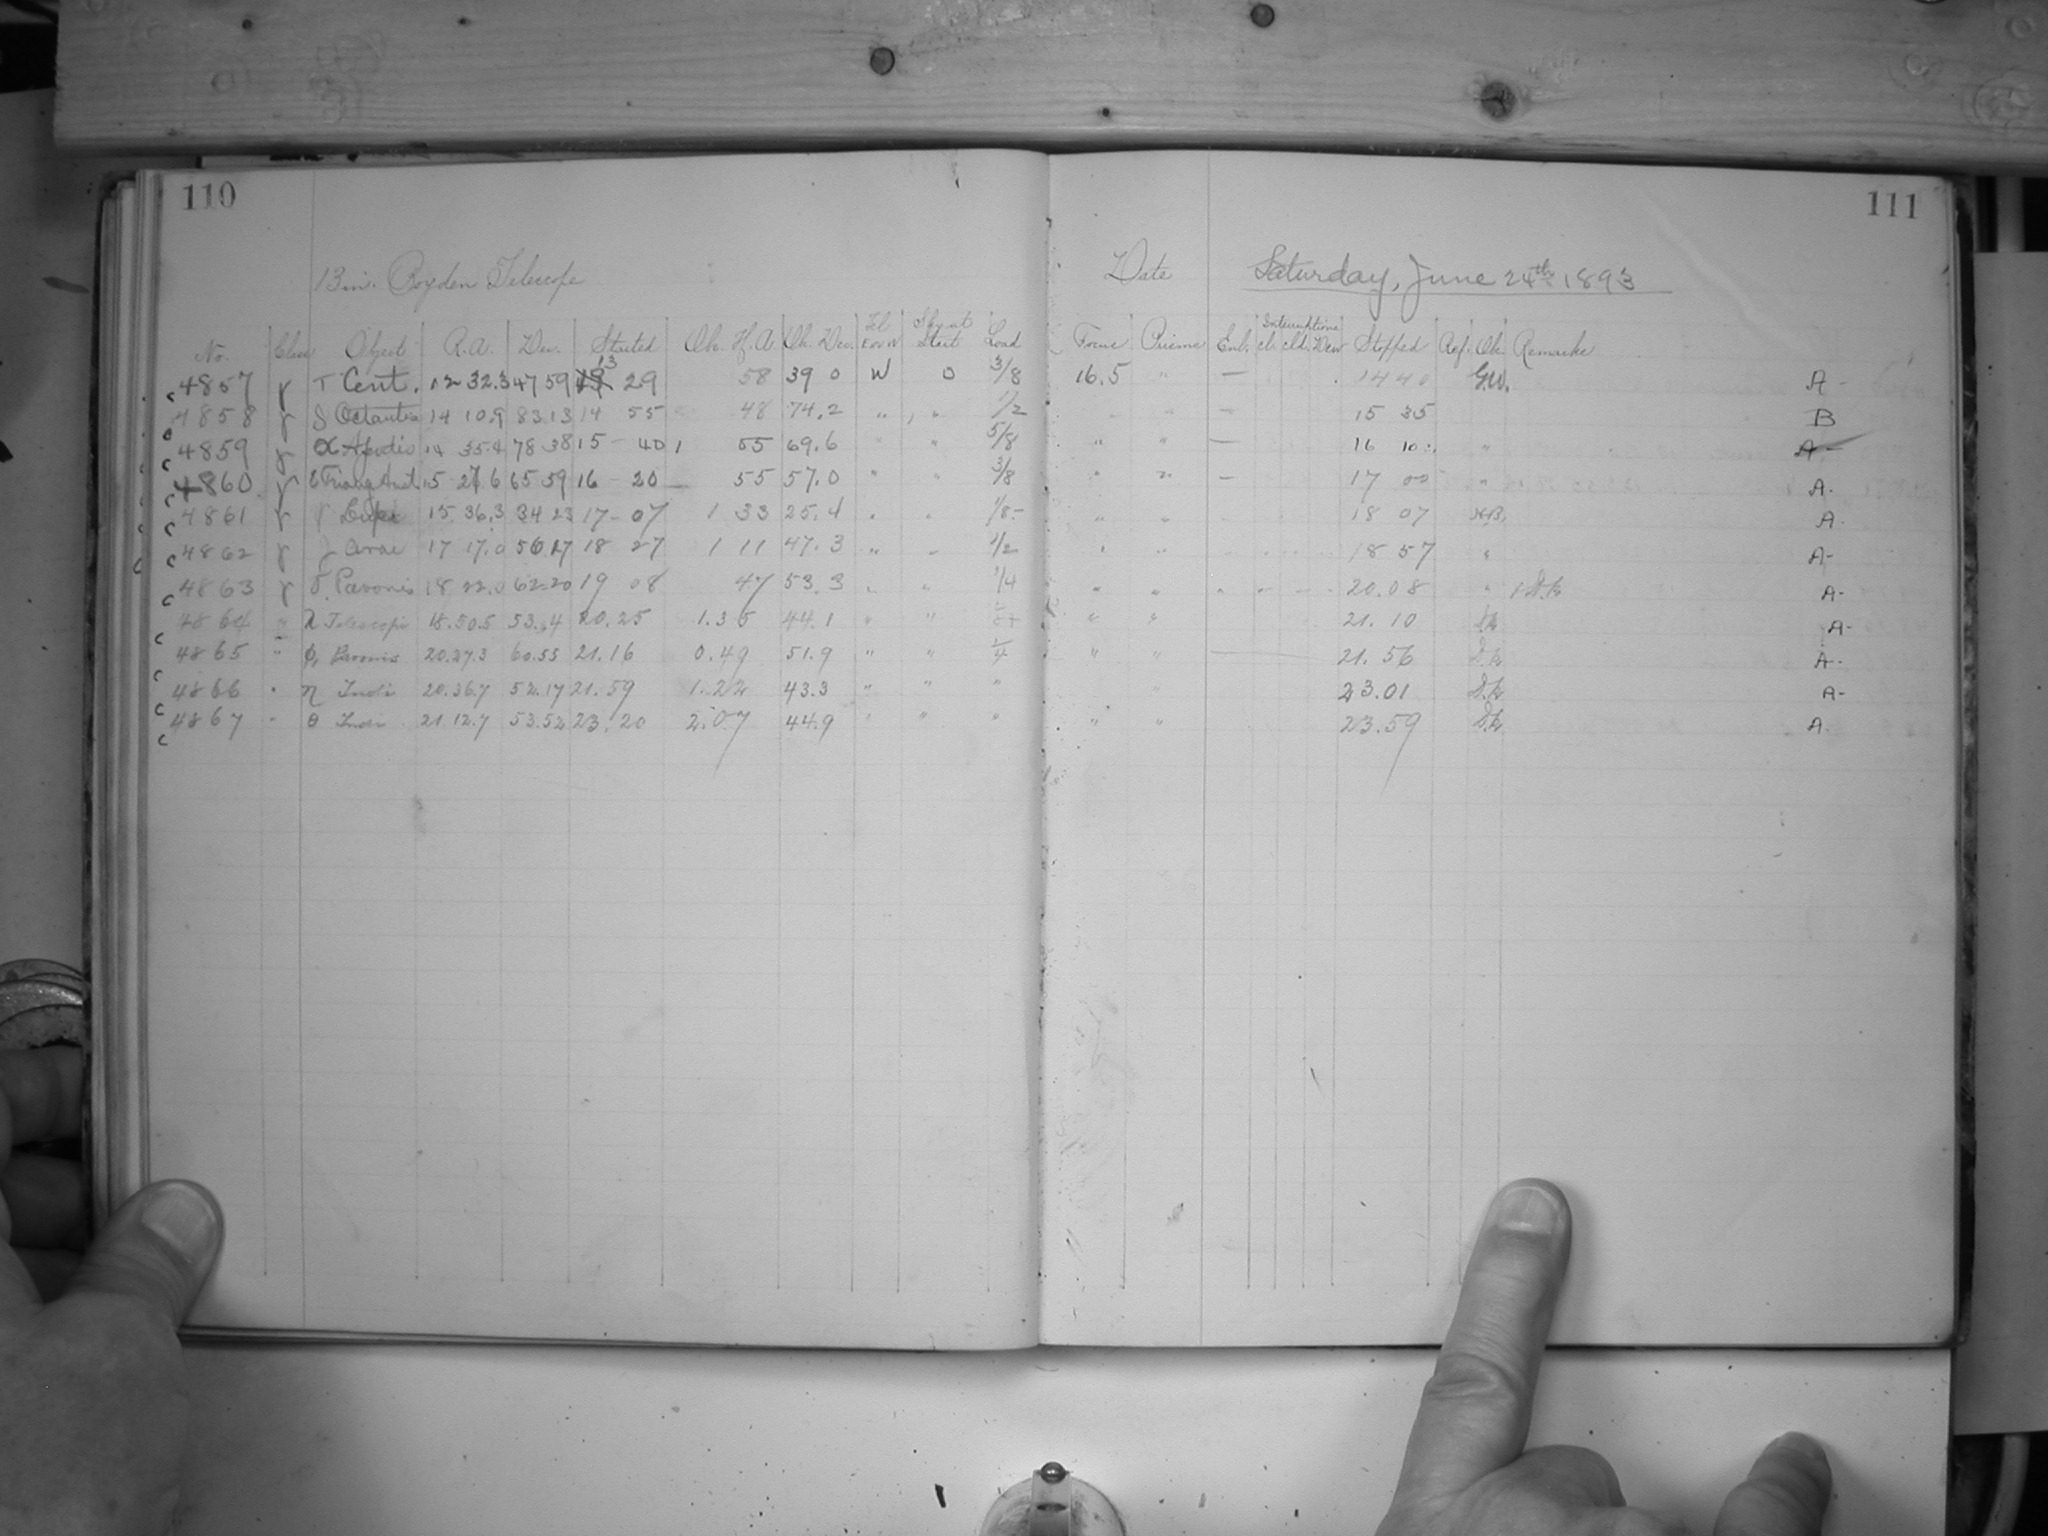 110
111
13 in. Boyden Telescope
Date Saturday, June 24th 1893
No. Class Object R.A. Dec. Started Ob. H.A. Ob. Dec. Tel E or W Sky at Start Load Focus Prisms Enl. Interruptions cl. cld. Dew Stopped Ref. Ob. Remarks
4857 γ T Cent. 12 32.3 47 59 13 29 58 39 0 W 0 3/8 16.5 " — 14 40 G.W. A-
4858 γ δ Octantis 14 10.9 83.13 14 55 48 74.2 " " 1/2 " " — 15 35 B
4859 γ α Apodis 14 35.4 78 38 15 - 40 1 55 69.6 " " 5/8 " " — 16 10 " A-
4860 γ ε Triang Aust 15 27.6 65 59 16 - 20 — 55 57.0 " " 3/8 " " — 17 00 " A-
4861 γ Lupi 15. 36.3 34 23 17 - 07 1 33 25.4 " " 1/8 " " 18 07 A-
4862 γ Arae 17 17.0 56 17 18 27 1 11 47.3 " " 1/2 " " 18 57 " A-
4863 γ Pavonis 18 22.0 62.20 19 08 47 53.3 " " 1/4 " " 20.08 " A-
4864 " Telescopi 18.50.5 53.4 20.25 1.35 44.1 " " " " 21.10 A-
4865 " Pavonis 20.27.3 60.55 21.16 0.49 51.9 " " 1/4 " " — 21.56 A-
4866 " η Indi 20.36.7 52.17 21.59 1.22 43.3 " " " " 23.01 A-
4867 " θ Indi 21.12.7 53.52 23.20 2.07 44.9 " " " " " 23.59 A.